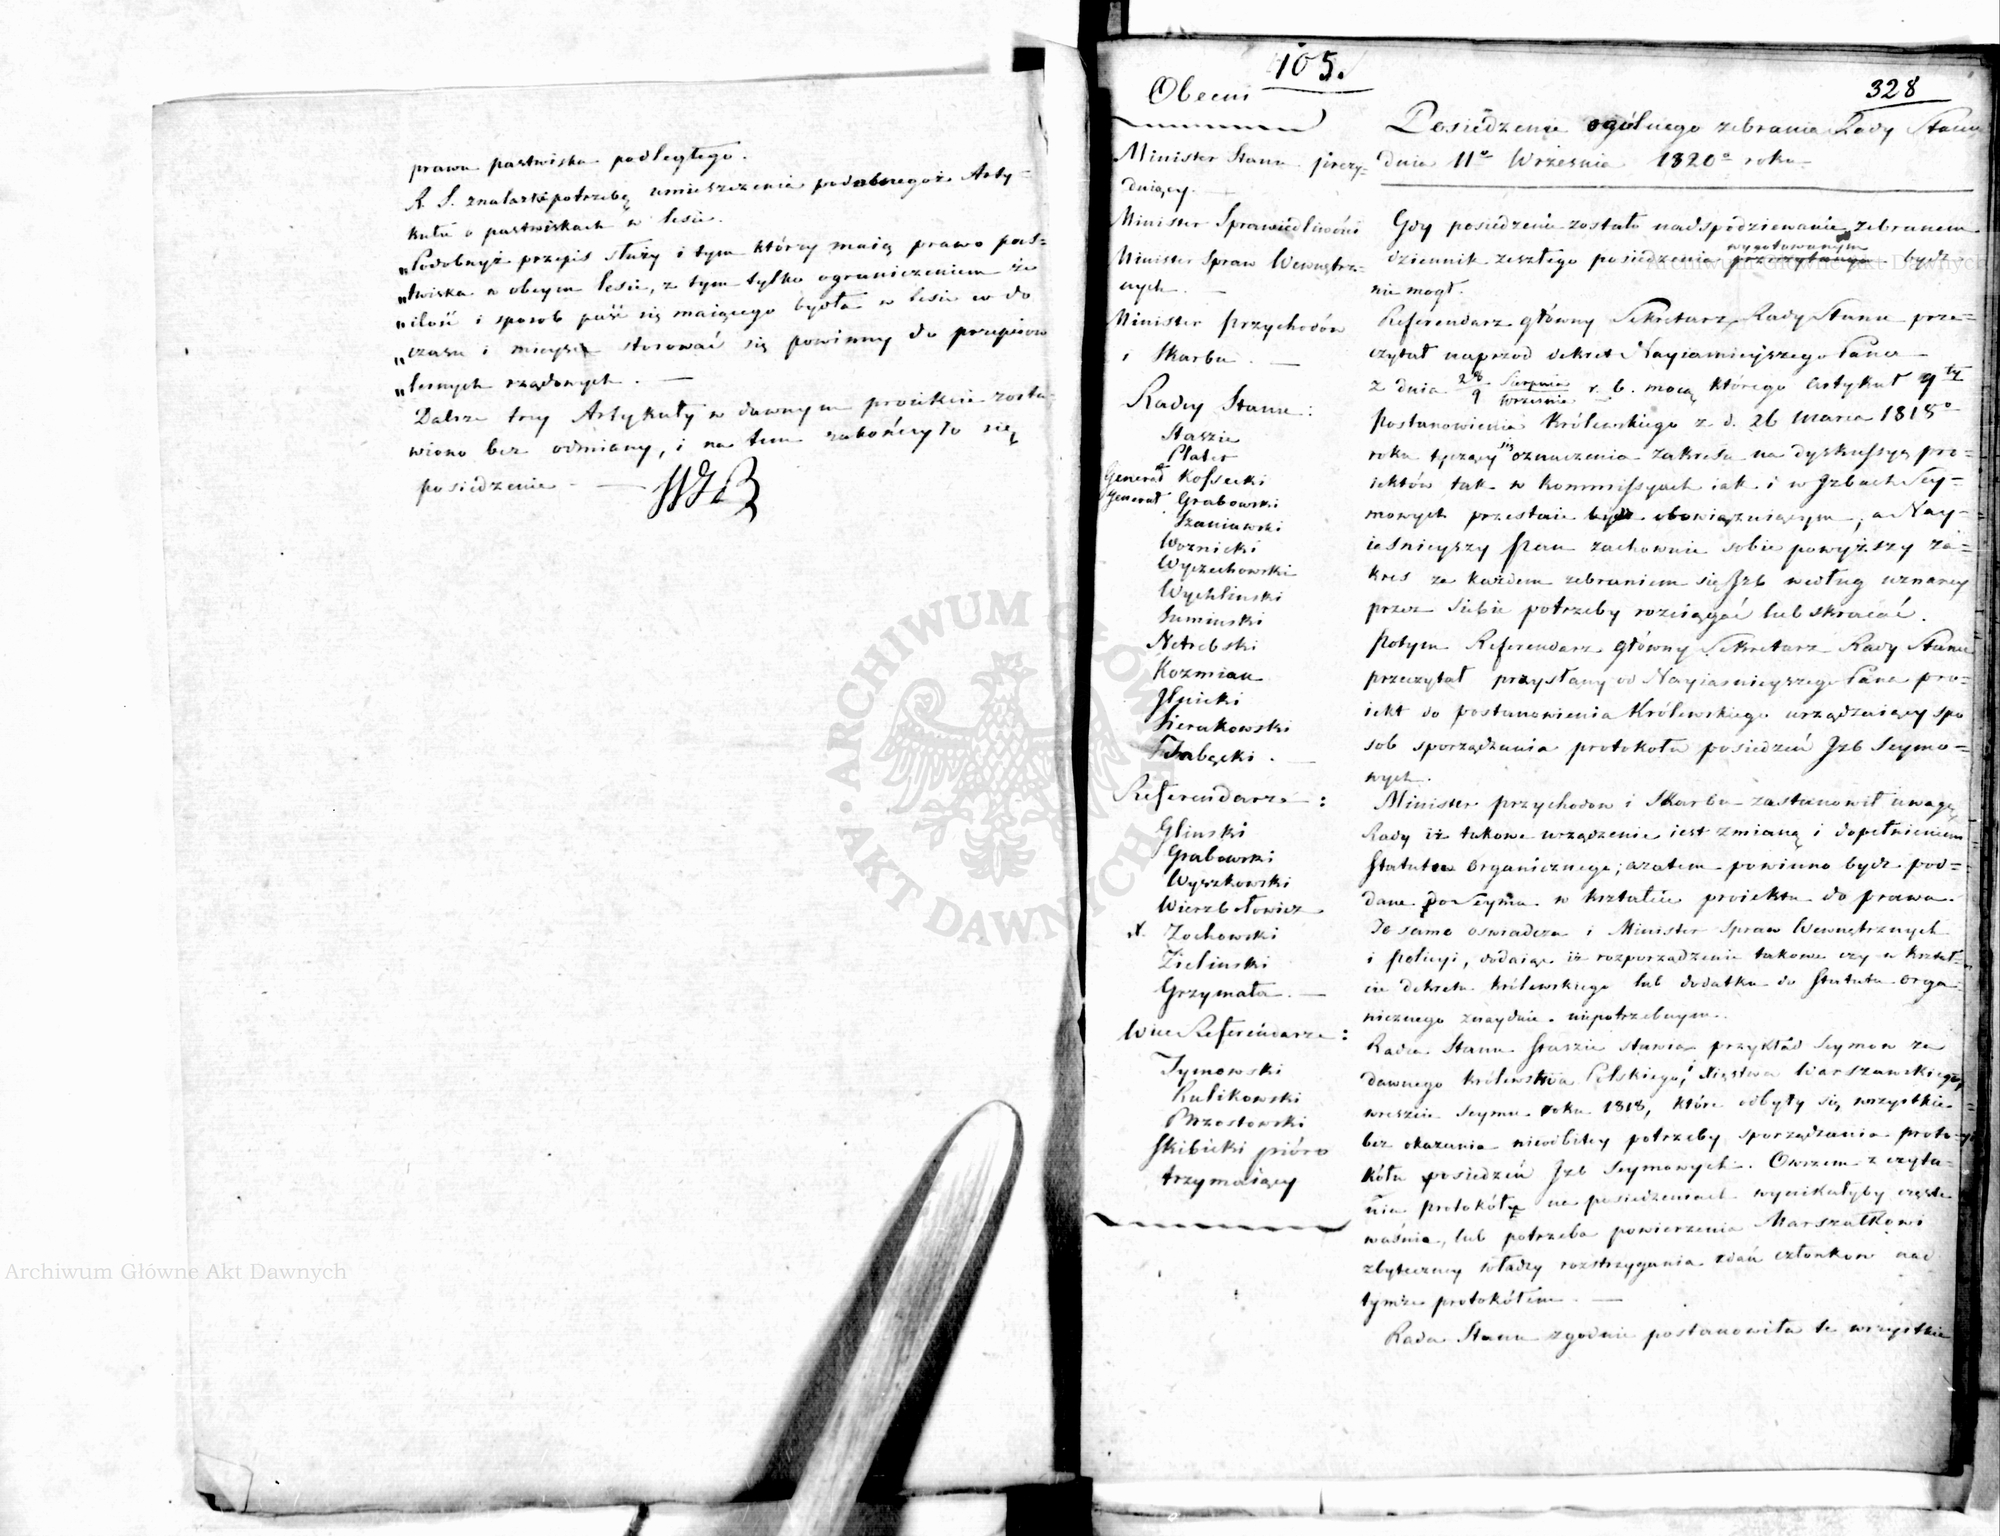 prawu pastwiska podległego.
R. S. znalazła potrzebę umieszczenia podobnegoż Arty-
kułu o pastwiskach w lesie.
„Podobnyż przepis służy i tym którzy maią prawo pas-
„twiska w obcym lesie, z tym tylko ograniczeniem że
„ilość i sposób paść się maiącego bydła w lesie co do
„czasu i mieysca stosować się powinny do przepisów
„leśnych rządowych. —
Dalsze trzy Artykuły w dawnym proiekcie zosta-
wiono bez odmiany, i na tem zakończyło się
posiedzenie. —
105.
328
Obecni
Minister Stanu prezy-
duiący. —
Minister Sprawiedliwości
Minister Spraw Wewnętrz-
nych. —
Minister Przychodów
i Skarbu. —
Radcy Stanu:
Staszic
Plater
Generał Kossecki
Generał Grabowski
Szaniawski
Woznicki
Wyczechowski
Wychliński
Sumiński
Netrebski
Kozmian
Jlnicki
Sierakowski
Zabęcki. —
Referendarze:
Gliński
Grabowski
Wyszkowski
Wierzbołowicz
x. Zochowski
Zieliński
Grzymała. —
Wice Referendarze:
Tymowski
Kulikowski
Brzostowski
Skibicki pióro
trzymaiący
Posiedzenie ogólnego zebrania Rady Stanu
dnia 11o Września 1820o roku
Gdy posiedzenie zostało nadspodziewanie zebranem
wygotowanym
dziennik zeszłego posiedzenia przeczytanym bydź
nie mogł.
Referendarz główny Sekretarz Rady Stanu prze-
czytał naprzod dekret Nayiaśnieyszego Pana
z dnia 28 Sierpnia / 9 Września r. b. mocą którego Artykuł 9ty
Postanowienia Królewskiego z d. 26 Marca 1818o
roku tyczący się oznaczenia zakresu na dyskussyą pro-
iektów tak w Kommissyach iak i w Jzbach Sey-
mowych przestaie bydź obowiązuiącym, a Nay-
iaśnieyszy Pan zachownie sobie powyższy za-
kres za każdem zebraniem się Jzb według uznaney
przez siebie potrzeby rozciągać lub skracać.
Potym Referendarz główny Sekretarz Rady Stanu
przeczytał przysłany od Nayiaśnieyszego Pana pro-
iekt do postanowienia Królewskiego urządzaiący spo
sob sporządzania protokołu posiedzeń Jzb Seymo-
wych.
Minister przychodow i Skarbu zastanowił uwagę
Rady iż takowe urządzenie iest zmianą i dopełnieniem
Statutu Organicznego; azatem powinno bydz pod-
dane do Seymu w kształcie proiektu do prawa.
To samo oswiadcza i Minister Spraw Wewnętrznych
i policyi, dodaiąc iż rozporządzenie takowe czy w kształ-
cie dekretu królewskiego lub dodatku do Statutu Orga-
nicznego znayduie niepotrzebnym.
Radca Stanu Staszic stawia przykład Seymow za
dawnego Królewstwa Polskiego, i Xięstwa Warszawskiego,
wreszcie Seymu roku 1818, które odbyły się wszystkie
bez okazania nieodbitey potrzeby sporządzania proto-
kółu posiedzeń Jzb Seymowych. Owszem z czyta-
nia protokółu na posiedzeniach wynikałyby częste
waśnie, lub potrzeba powierzenia Marszałkowi
zbyteczney władzy rozstrzygania zdań członkow nad
tymże protokółem. —
Rada Stanu zgodnie postanowiła te wszystkie
Archiwum Główne Akt Dawnych
Archiwum Główne Akt Dawnych
ARCHIWUM GŁÓWNE AKT DAWNYCH